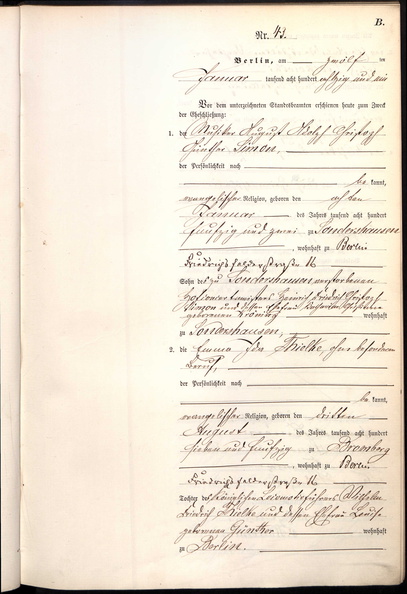 B.
Nr. 43.
Berlin, am zwölften
Januar tausend acht hundert achtzig und ein
Vor dem unterzeichneten Standesbeamten erschienen heute zum Zweck
der Eheschließung:
1. der Musiker August Adolph Christoph
Günther Simon,
der Persönlichkeit nach
be kannt,
evangelischer Religion, geboren den achten
Januar des Jahres tausend acht hundert
fünfzig und zwei zu Sondershausen
, wohnhaft zu Berlin
Friedrichsfelderstraße 16
Sohn des zu Sondershausen verstorbenen
Heinrich Friedrich Christoph
Simon und dessen Ehefrau
geborenen wohnhaft
zu Sondershausen,
2. die Emma Ida Thielke, ohne besonderen
Beruf,
der Persönlichkeit nach
be kannt,
evangelischer Religion, geboren den dritten
August des Jahres tausend acht hundert
sieben und fünfzig zu Bromberg
, wohnhaft zu Berlin
Friedrichsfelderstraße 16
Tochter des Königlichen Locomotivführers Wilhelm
Friedrich Thielke und dessen Ehefrau Louise
geborenen Günther wohnhaft
zu Berlin.